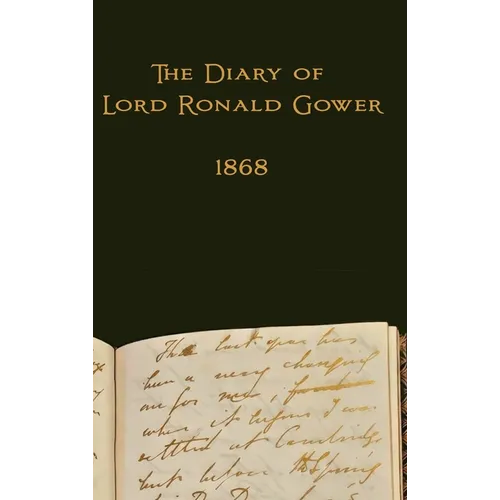 The Diary of
Lord Ronald Gower
1868
The last year has
been a very changing
one for me,
when it began I was
settled at Cambridge
but before the Spring